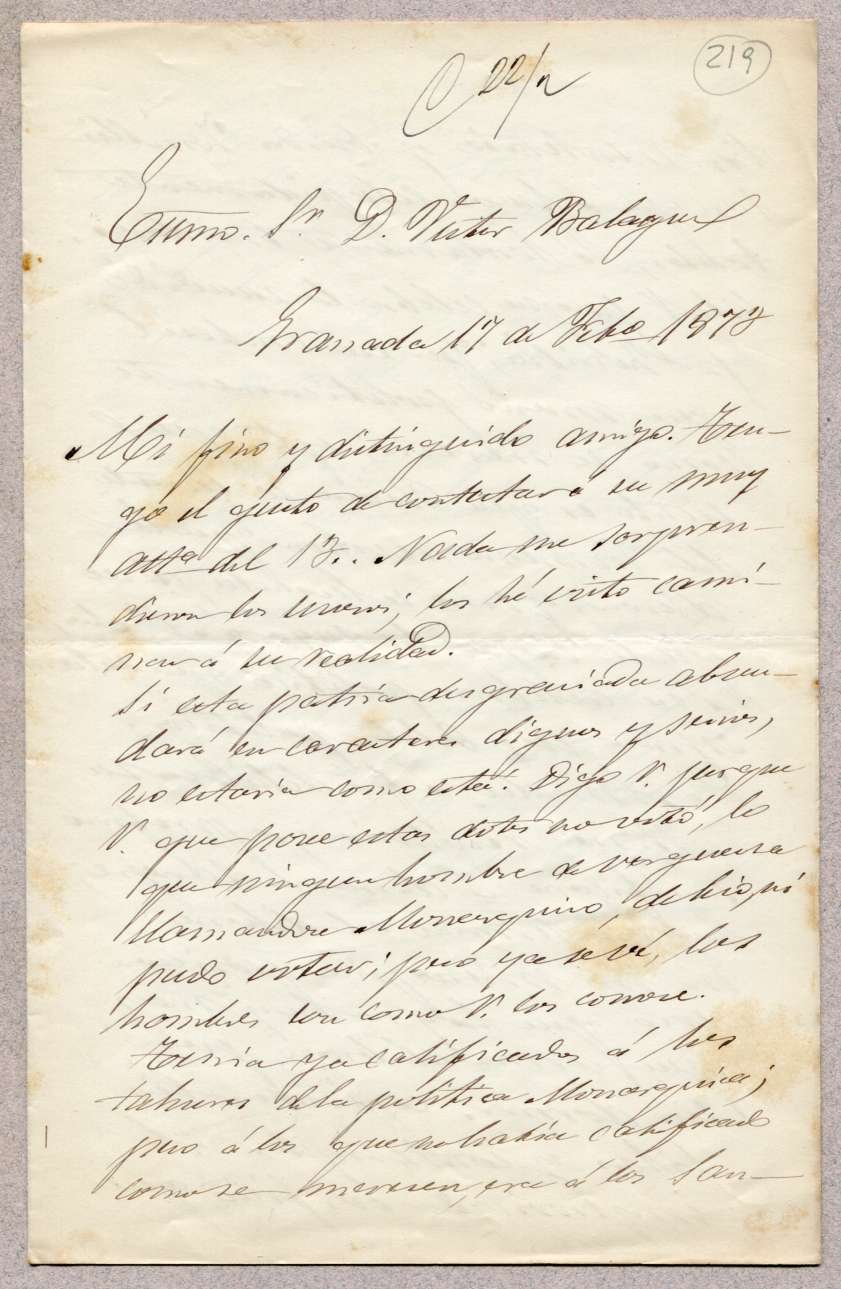 219
C 22/2
Excmo. Sr. D. Victor Balaguer
Granada 17 de Febo 1873
Mi fino y distinguido amigo. Ten-
go el gusto de contestar á su muy
atta del 13.. Nada me sorpren-
dieron los sucesos; los hé visto cami-
nar á su realidad.
Si esta patria desgraciada abun-
dará en caracteres dignos y serios,
no estaria como está. Digo V. porque
V. que posee estas dotes no votó, lo
que ningun hombre de verguenza
llamandose Monarquico, debio, ni
pudo votar; pero ya se vé, los
hombres son como V. los conoce.
Tenia ya calificados á los
tahures de la politica Monarquica;
pero á los que no habia calificado
como se merecen, era á los San-